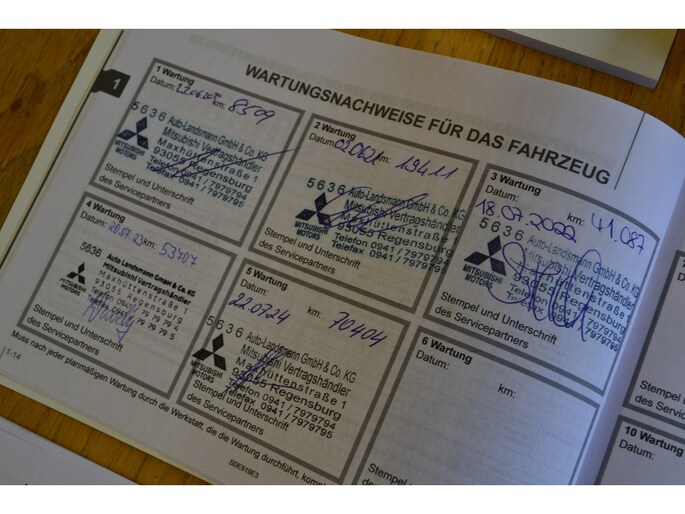 WARTUNGSNACHWEISE FÜR DAS FAHRZEUG
1
1 Wartung
Datum: km: 8509
5636 Auto-Landsmann GmbH & Co. KG
Mitsubishi Vertragshändler
Maxhüttenstraße 1
93055 Regensburg
Telefon 0941/7979794
Telefax 0941/7979795
MITSUBISHI
MOTORS
Stempel und Unterschrift
des Servicepartners
2 Wartung
Datum: 02.06.21 km: 19411
5636 Auto-Landsmann GmbH & Co. KG
Mitsubishi Vertragshändler
Maxhüttenstraße 1
93055 Regensburg
Telefon 0941/7979794
Telefax 0941/7979795
MITSUBISHI
MOTORS
Stempel und Unterschrift
des Servicepartners
3 Wartung
Datum:
18.07.2022 km: 41.087
5636 Auto-Landsmann GmbH & Co. KG
Mitsubishi Vertragshändler
Maxhüttenstraße 1
93055 Regensburg
Telefon 0941/7979794
Telefax 0941/7979795
MITSUBISHI
MOTORS
Stempel und Unterschrift
des Servicepartners
4 Wartung
Datum: 20.07.23 km: 53707
5636 Auto Landsmann GmbH & Co. KG
Mitsubishi Vertragshändler
Maxhüttenstraße 1
93055 Regensburg
Telefon 0941 / 79 79 79 4
79 79 79 5
MITSUBISHI
MOTORS
Stempel und Unterschrift
des Servicepartners
5 Wartung
Datum:
22.07.24 km: 70404
5636 Auto-Landsmann GmbH & Co. KG
Mitsubishi Vertragshändler
Maxhüttenstraße 1
93055 Regensburg
Telefon 0941/7979794
Telefax 0941/7979795
MITSUBISHI
MOTORS
Stempel und Unterschrift
des Servicepartners
6 Wartung
Datum:
km:
Stempel
des Ser
10 Wartung
Datum:
Muss nach jeder planmäßigen Wartung durch die Werkstatt, die die Wartung durchführt, kom
1-14
SDE919E3